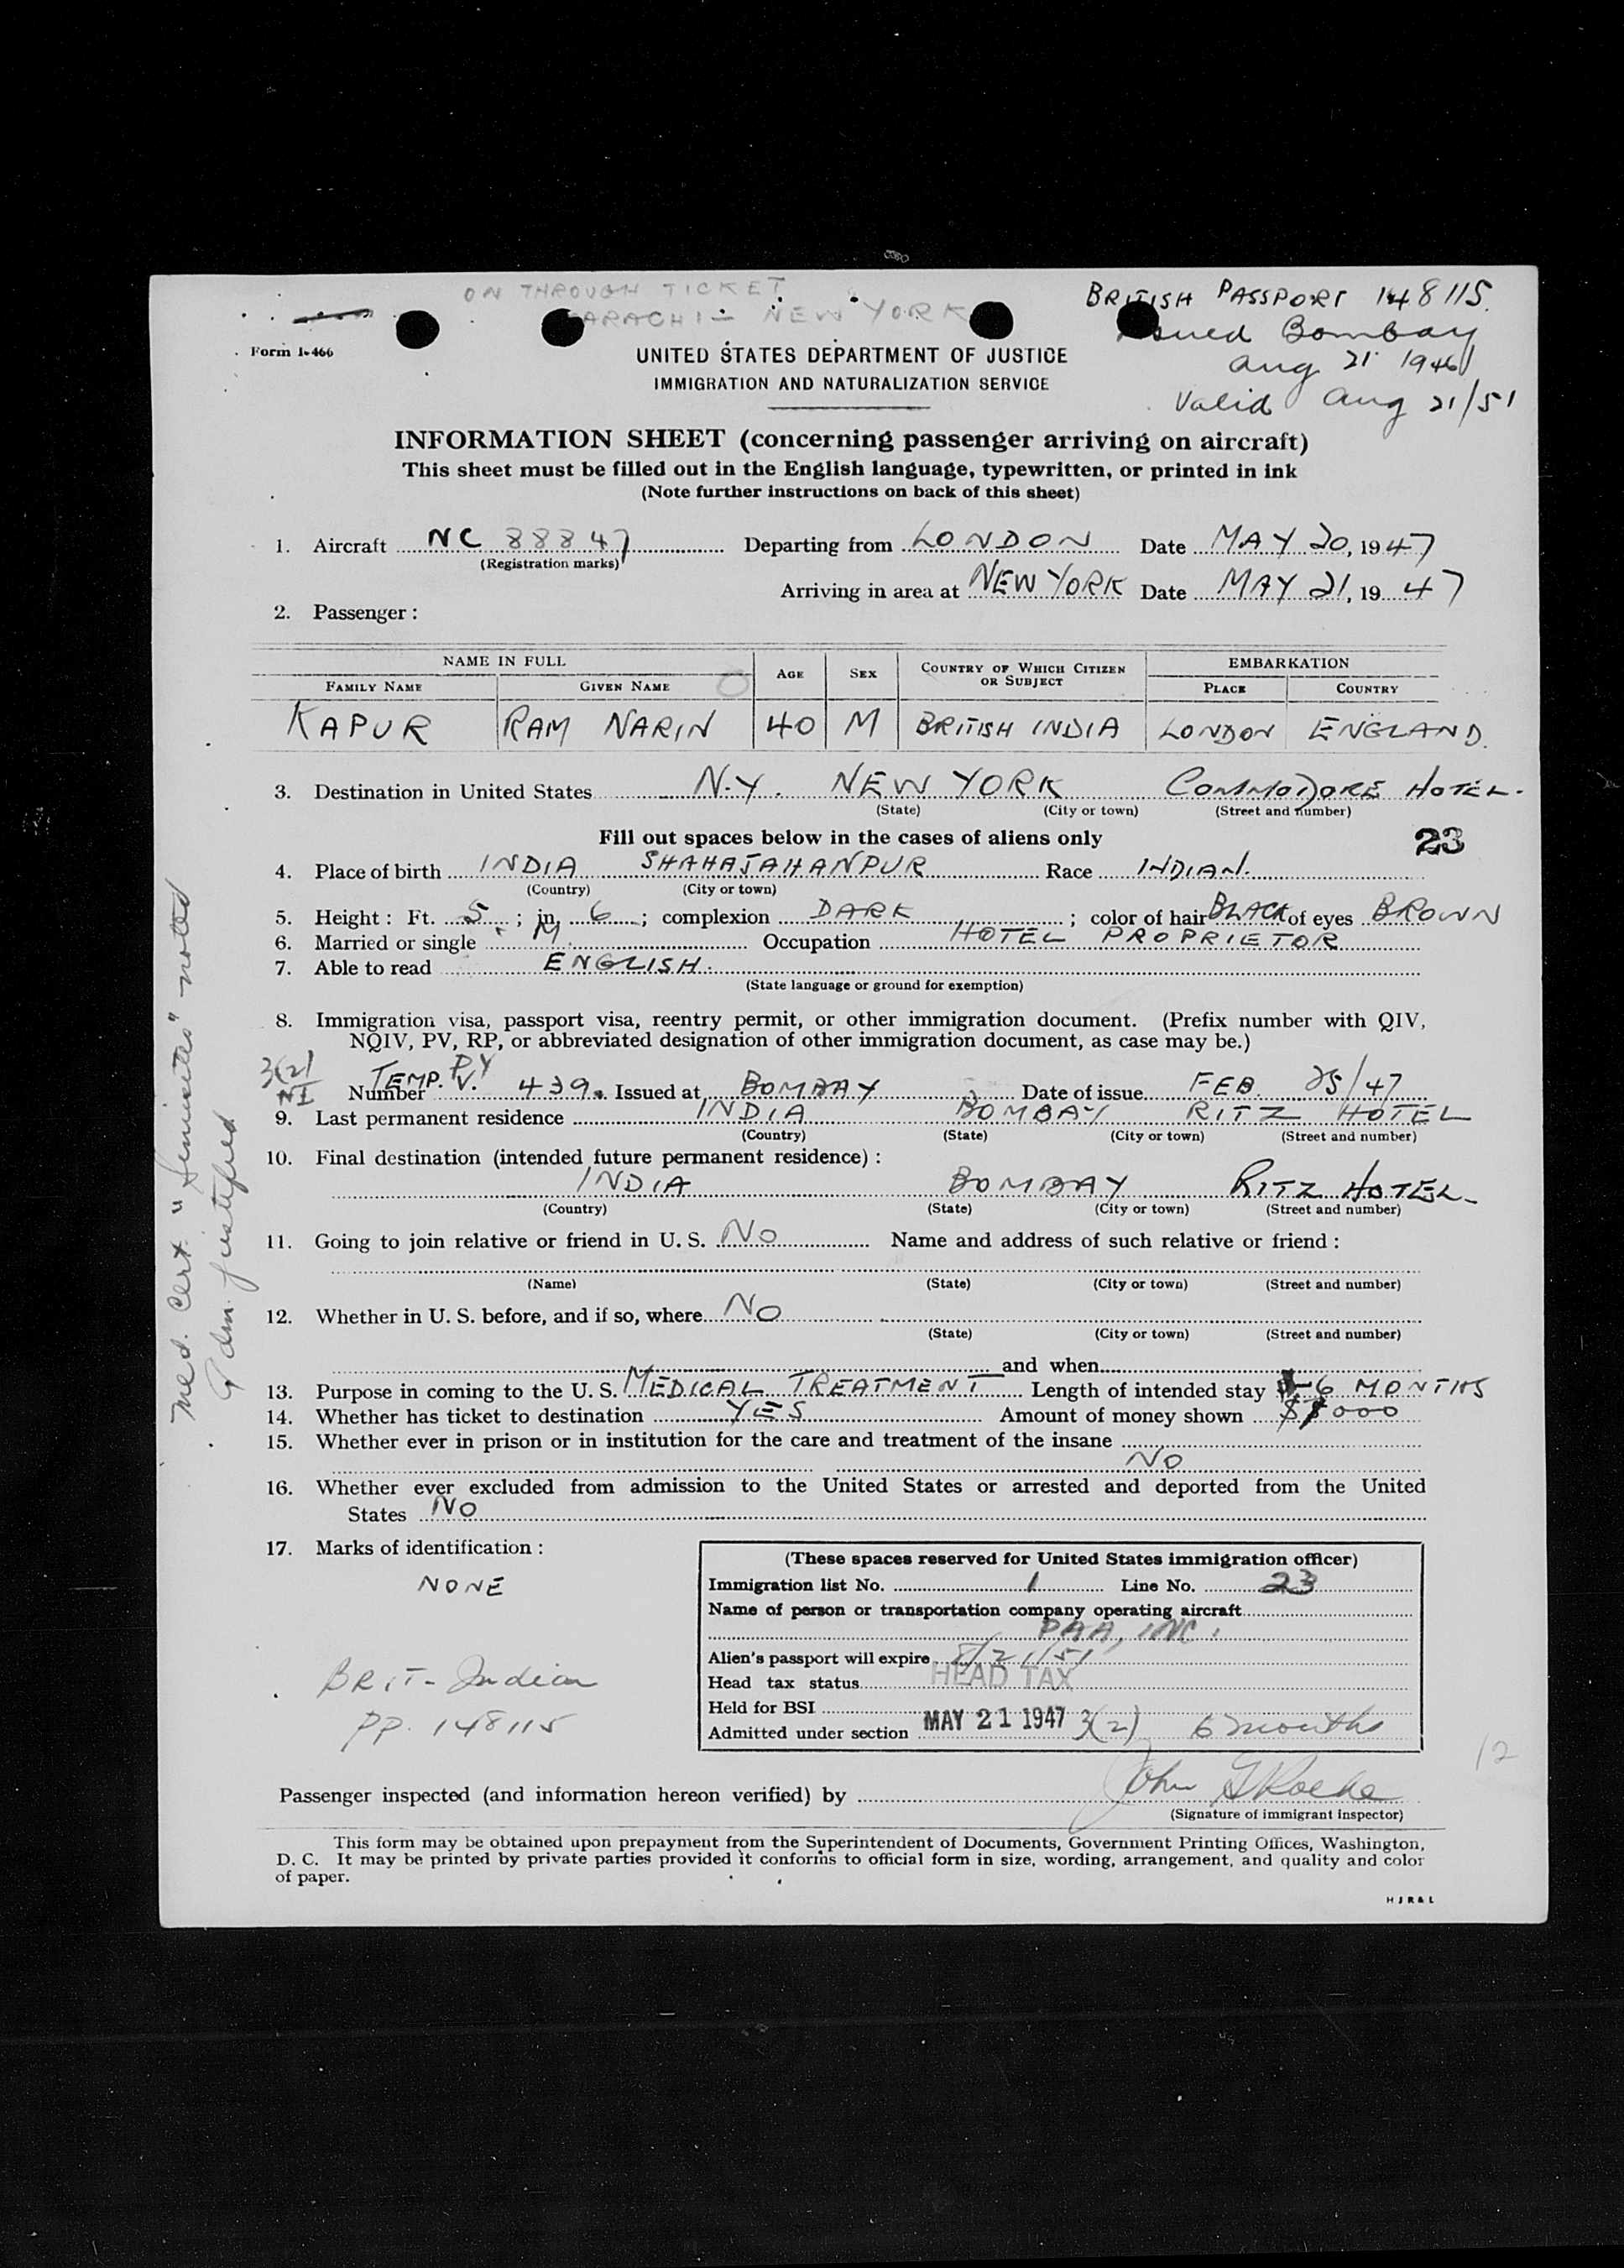 ON THROUGH TICKET
KARACHI – NEW YORK
BRITISH PASSPORT 148115.
issued Bombay
Aug 21 1946
Valid Aug 21/51
Form I-466
UNITED STATES DEPARTMENT OF JUSTICE
IMMIGRATION AND NATURALIZATION SERVICE
INFORMATION SHEET (concerning passenger arriving on aircraft)
This sheet must be filled out in the English language, typewritten, or printed in ink
(Note further instructions on back of this sheet)
1. Aircraft NC 88847 Departing from LONDON Date MAY 20, 1947
(Registration marks)
Arriving in area at NEW YORK Date MAY 21, 1947
2. Passenger :
NAME IN FULL AGE SEX COUNTRY OF WHICH CITIZEN OR SUBJECT EMBARKATION
FAMILY NAME GIVEN NAME PLACE COUNTRY
KAPUR RAM NARIN 40 M BRITISH INDIA LONDON ENGLAND.
3. Destination in United States N.Y. NEW YORK COMMODORE HOTEL.
(State) (City or town) (Street and number)
Fill out spaces below in the cases of aliens only 23
4. Place of birth INDIA SHAHAJAHANPUR Race INDIAN.
(Country) (City or town)
5. Height : Ft. 5 ; in. 6 ; complexion DARK ; color of hair BLACK of eyes BROWN
6. Married or single M. Occupation HOTEL PROPRIETOR
7. Able to read ENGLISH.
(State language or ground for exemption)
8. Immigration visa, passport visa, reentry permit, or other immigration document. (Prefix number with QIV,
NQIV, PV, RP, or abbreviated designation of other immigration document, as case may be.)
3(2)
NI
Number TEMP. V. PV 439. Issued at BOMBAY Date of issue FEB. 25/47
9. Last permanent residence INDIA BOMBAY RITZ HOTEL
(Country) (State) (City or town) (Street and number)
10. Final destination (intended future permanent residence) :
INDIA BOMBAY RITZ HOTEL
(Country) (State) (City or town) (Street and number)
11. Going to join relative or friend in U. S. NO Name and address of such relative or friend :
(Name) (State) (City or town) (Street and number)
12. Whether in U. S. before, and if so, where NO
(State) (City or town) (Street and number)
and when
13. Purpose in coming to the U. S. MEDICAL TREATMENT Length of intended stay 6 MONTHS
14. Whether has ticket to destination YES Amount of money shown
15. Whether ever in prison or in institution for the care and treatment of the insane
NO
16. Whether ever excluded from admission to the United States or arrested and deported from the United
States NO
17. Marks of identification :
NONE
BRIT-Indian
PP. 148115
(These spaces reserved for United States immigration officer)
Immigration list No. 1 Line No. 23
Name of person or transportation company operating aircraft
PAA, INC.
Alien's passport will expire 8/21/51
Head tax status HEAD TAX
Held for BSI
Admitted under section MAY 21 1947 3(2) 6 months
12
Passenger inspected (and information hereon verified) by John G Roche
(Signature of immigrant inspector)
This form may be obtained upon prepayment from the Superintendent of Documents, Government Printing Offices, Washington,
D. C. It may be printed by private parties provided it conforms to official form in size, wording, arrangement, and quality and color
of paper.
H J R & L
Med. Cert. noted
Adm. justified